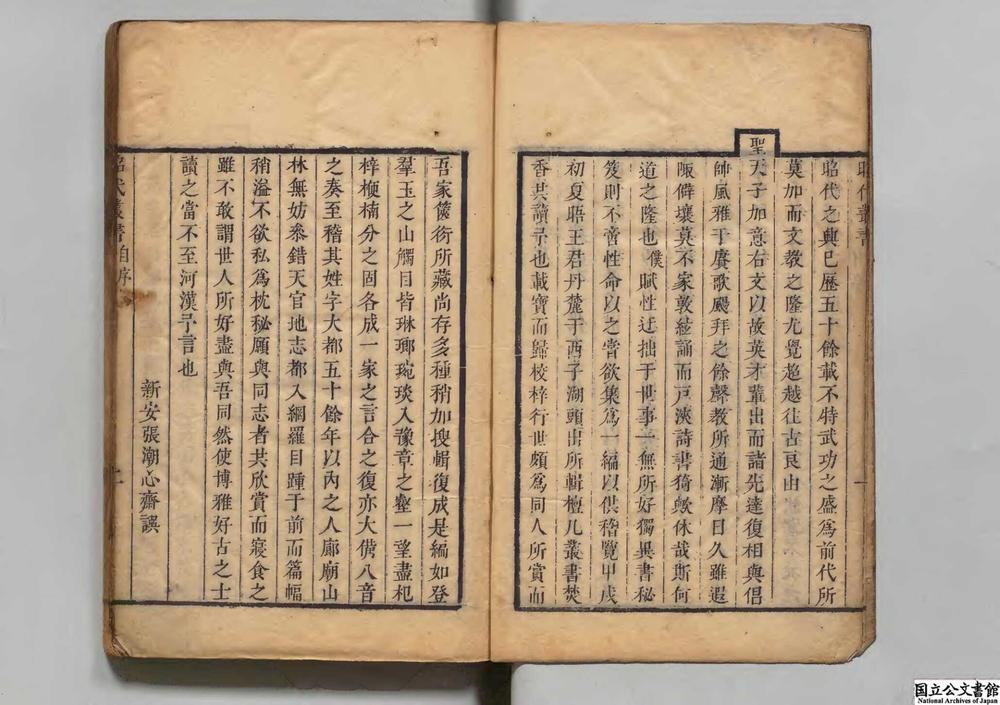 昭代叢書
昭代之典已歷五十餘載不特武功之盛爲前代所
莫加而文教之隆尤覺超越往古良由
聖天子加意右文以故英才輩出而諸先達復相與倡
帥風雅于賡歌颺拜之餘聲教所通漸摩日久雖遐
陬僻壤莫不家敦絃誦而戸浹詩書猗歟休哉斯何
道之隆也僕賦性迂拙于世事一無所好獨異書秘
笈則不啻性命以之嘗欲集爲一編以供稽覽甲戌
初夏晤王君丹麓于西子湖頭出所輯檀几叢書焚
香共讀予也載寶而歸校梓行世頗爲同人所賞而
吾家篋衍所藏尚存多種稍加搜輯復成是編如登
羣玉之山觸目皆琳瑯琬琰入豫章之壑一望盡杞
梓楩楠分之固各成一家之言合之復亦大備八音
之奏至稽其姓字大都五十餘年以內之人廊廟山
林無妨叅錯天官地志都入網羅目踵于前而篇幅
稍溢不欲私爲枕秘願與同志者共欣賞而寢食之
雖不敢謂世人所好盡與吾同然使博雅好古之士
讀之當不至河漢予言也
新安張潮心齋譔
昭代叢書自序
上
国立公文書館
National Archives of Japan